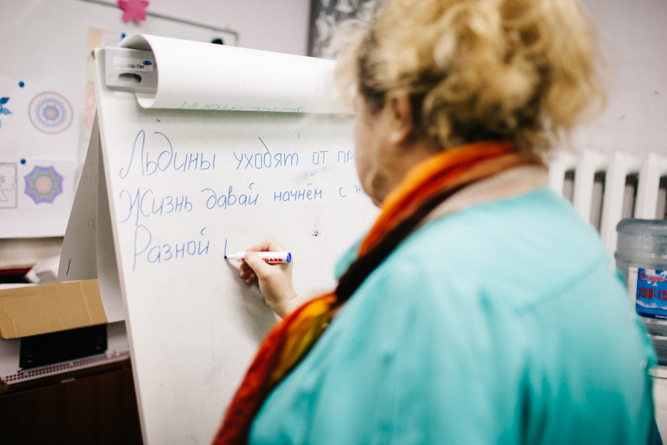 Льдины уходят от пр
Жизнь давай начнём с н
Разной